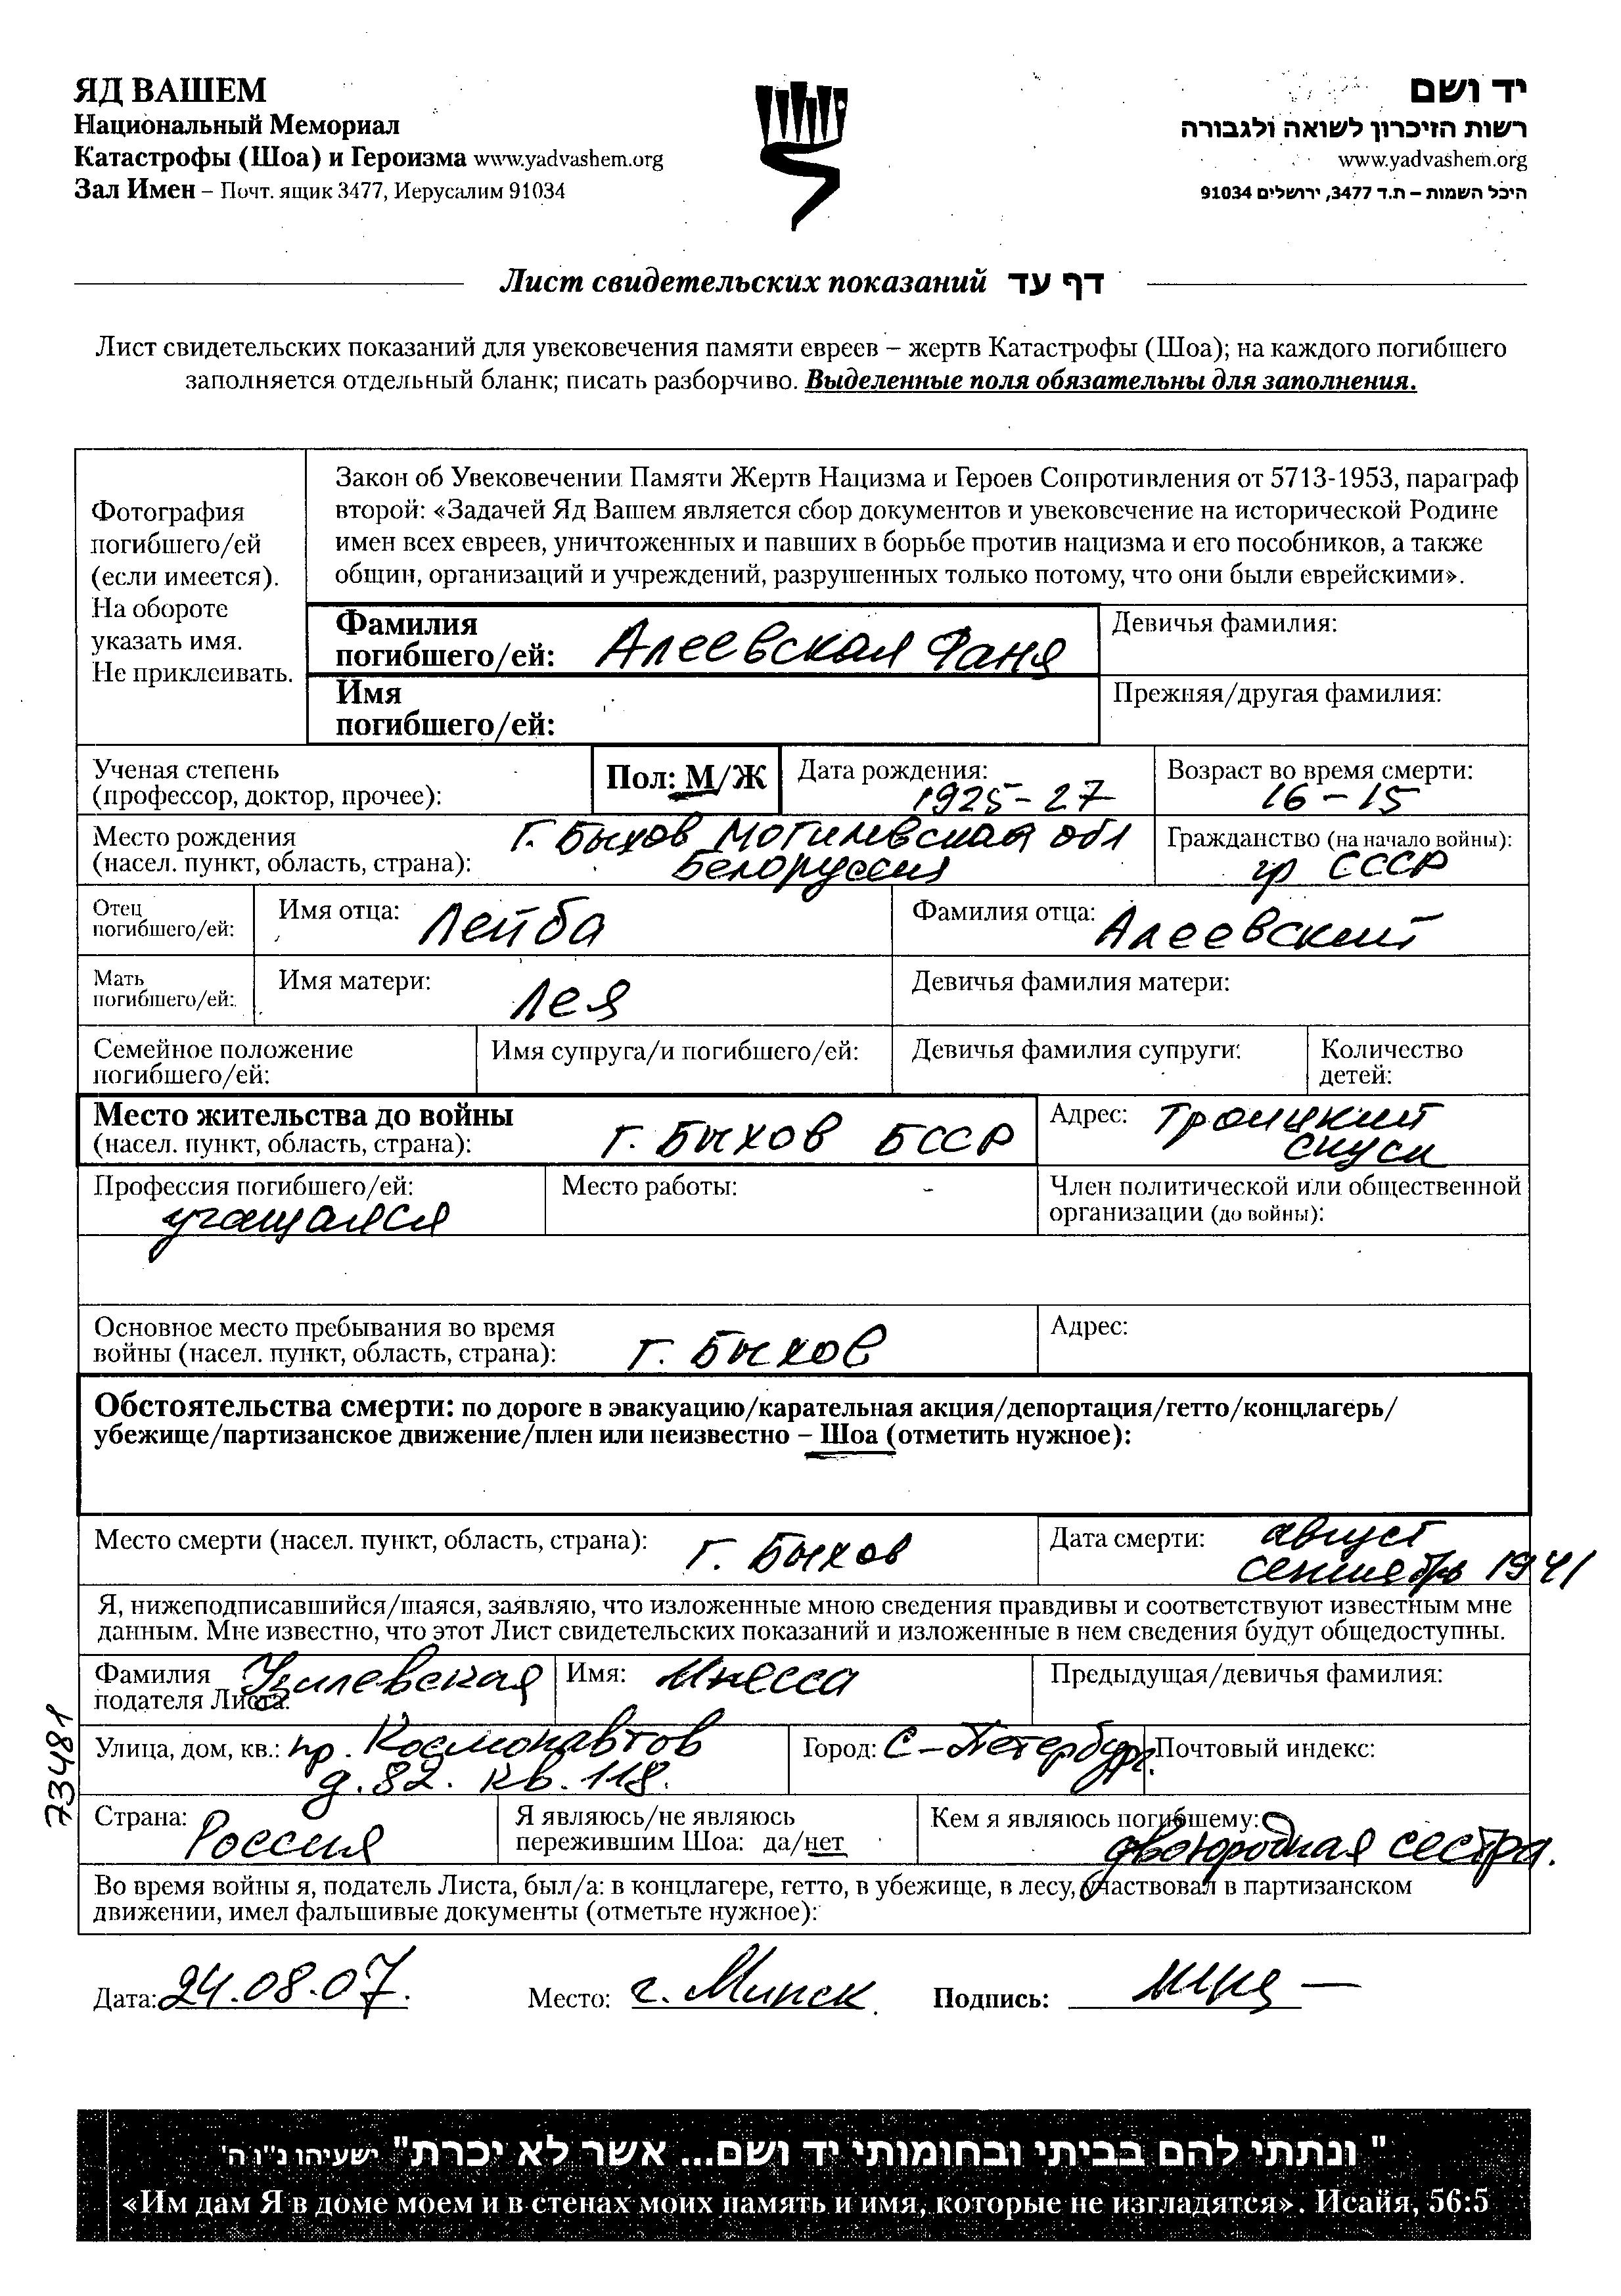 ЯД ВАШЕМ
Национальный Мемориал
Катастрофы (Шоа) и Героизма www.yadvashem.org
Зал Имен – Почт. ящик 3477, Иерусалим 91034
יד ושם
רשות הזיכרון לשואה ולגבורה
www.yadvashem.org
היכל השמות – ת.ד 3477, ירושלים 91034
Лист свидетельских показаний דף עד
Лист свидетельских показаний для увековечения памяти евреев – жертв Катастрофы (Шоа); на каждого погибшего
заполняется отдельный бланк; писать разборчиво. Выделенные поля обязательны для заполнения.
Фотография
погибшего/ей
(если имеется).
На обороте
указать имя.
Не приклеивать.
Закон об Увековечении Памяти Жертв Нацизма и Героев Сопротивления от 5713-1953, параграф
второй: «Задачей Яд Вашем является сбор документов и увековечение на исторической Родине
имен всех евреев, уничтоженных и павших в борьбе против нацизма и его пособников, а также
общин, организаций и учреждений, разрушенных только потому, что они были еврейскими».
Фамилия
погибшего/ей: Алеевская Фаня
Девичья фамилия:
Имя
погибшего/ей:
Прежняя/другая фамилия:
Ученая степень
(профессор, доктор, прочее):
Пол: М/Ж
Дата рождения:
1925-27
Возраст во время смерти:
16-15
Место рождения
(насел. пункт, область, страна):
г. Быхов Могилевская обл
Белоруссия
Гражданство (на начало войны):
гр СССР
Отец
погибшего/ей:
Имя отца: Лейба
Фамилия отца: Алеевский
Мать
погибшего/ей:
Имя матери: Лея
Девичья фамилия матери:
Семейное положение
погибшего/ей:
Имя супруга/и погибшего/ей:
Девичья фамилия супруги:
Количество
детей:
Место жительства до войны
(насел. пункт, область, страна): г. Быхов БССР
Адрес: Троицкий
спуск
Профессия погибшего/ей:
учащаяся
Место работы: -
Член политической или общественной
организации (до войны):
Основное место пребывания во время
войны (насел. пункт, область, страна): г. Быхов
Адрес:
Обстоятельства смерти: по дороге в эвакуацию/карательная акция/депортация/гетто/концлагерь/
убежище/партизанское движение/плен или неизвестно – Шоа (отметить нужное):
Место смерти (насел. пункт, область, страна): г. Быхов
Дата смерти: август
сентябрь 1941
Я, нижеподписавшийся/шаяся, заявляю, что изложенные мною сведения правдивы и соответствуют известным мне
данным. Мне известно, что этот Лист свидетельских показаний и изложенные в нем сведения будут общедоступны.
Фамилия
подателя Листа:
Имя: Инесса
Предыдущая/девичья фамилия:
Улица, дом, кв.: пр. Космонавтов
д. 82. кв. 118.
Город: С-Петербург.
Почтовый индекс:
Страна:
Россия
Я являюсь/не являюсь
пережившим Шоа: да/нет
Кем я являюсь погибшему:
двоюродная сестра.
Во время войны я, податель Листа, был/а: в концлагере, гетто, в убежище, в лесу, участвовал в партизанском
движении, имел фальшивые документы (отметьте нужное):
73481
Дата: 24.08.07. Место: г. Минск Подпись:
" ונתתי להם בביתי ובחומותי יד ושם... אשר לא יכרת" ישעיהו נ"ו ה'
«Им дам Я в доме моем и в стенах моих память и имя, которые не изгладятся». Исайя, 56:5